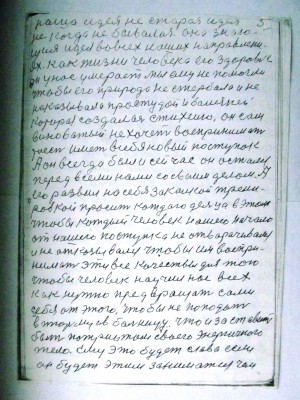 наша идея не старая идея 5
не когда не бывалая. она эволо-
ция идея во всех наших направлени-
ях. как жизни человека его здоровье
он у нас умерает мы ему не помогли
чтобы его природа не стербала и не
наказывала простудой и болезней
которая создалась стихию, он сам
виноватый не хочет воспринимат
и мет в себя новый поступок
А он всегда был и сей час он остался
перед всеми нами со своим делом. А
его развил на себя закалкой трени-
ровкой просит каждого дельца в этом
чтобы каждый человек нашего начало
от нашего поступка не отварачивался
и не отказывали чтобы им воспри-
нимат эти все качества для того
чтобы человек научил нас всех
как нужно предвращат сами
себя от этого, чтобы не поподат
в тюрму и в болницу. что и заставит
быт патриотом своего энергичного
тела. ему это будет слава если
он будет этим заниматся чем